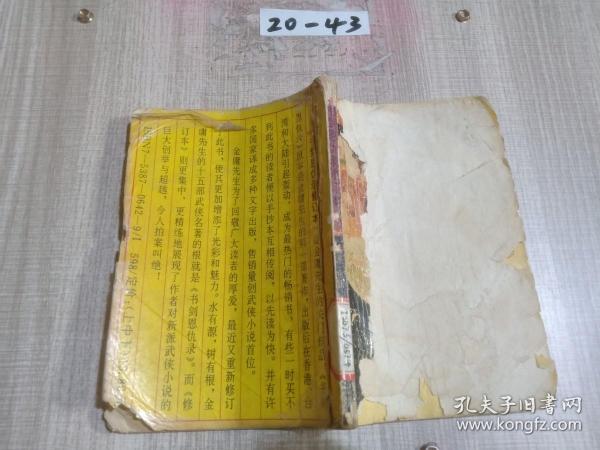 20-43
湾和大陆引起轰动，成为最热门的畅销书。有些一时买不
到此书的读者便以手抄本互相传阅，以先读为快。并有许
多国家译成多种文字出版，售销量创武侠小说首位。
金庸先生为了回敬广大读者的厚爱，最近又重新修订
了此书，使其更加增添了光彩和魅力。水有源，树有根，金
庸先生的十五部武侠名著的根就是《书剑恩仇录》。而《修
订本》则更集中、更精练地展现了作者对新派武侠小说的
巨大创举与超越，令人拍案叫绝！
ISBN7-5387-0642-9/I·598 定价：（上中下）
孔夫子旧书网
www.kongfz.com